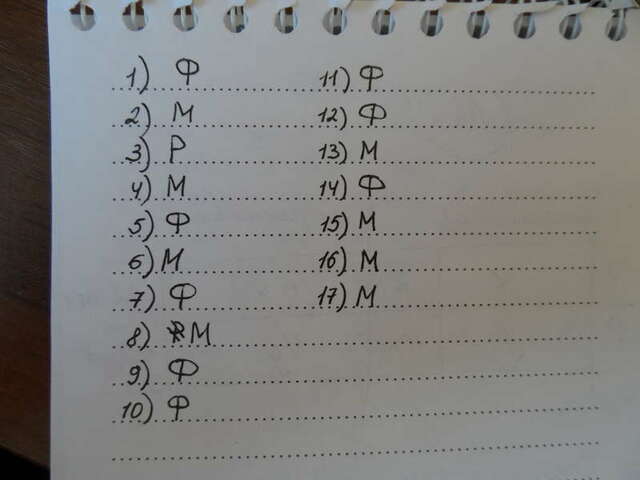 1) Ф
2) М
3) Р
4) М
5) Ф
6) М
7) Ф
8) М
9) Ф
10) Ф
11) Ф
12) Ф
13) М
14) Ф
15) М
16) М
17) М